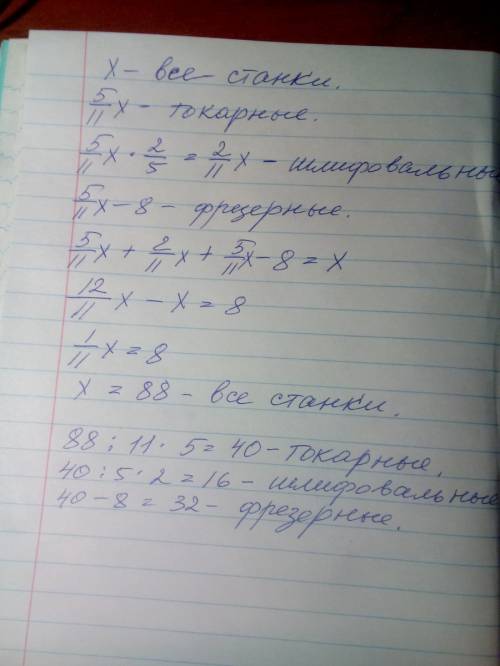 x – все станки.
5/11 x – токарные.
5/11 x · 2/5 = 2/11 x – шлифовальные
5/11 x – 8 – фрезерные.
5/11 x + 2/11 x + 5/11 x – 8 = x
12/11 x – x = 8
1/11 x = 8
x = 88 – все станки.
88 : 11 · 5 = 40 – токарные.
40 : 5 · 2 = 16 – шлифовальные
40 – 8 = 32 – фрезерные.